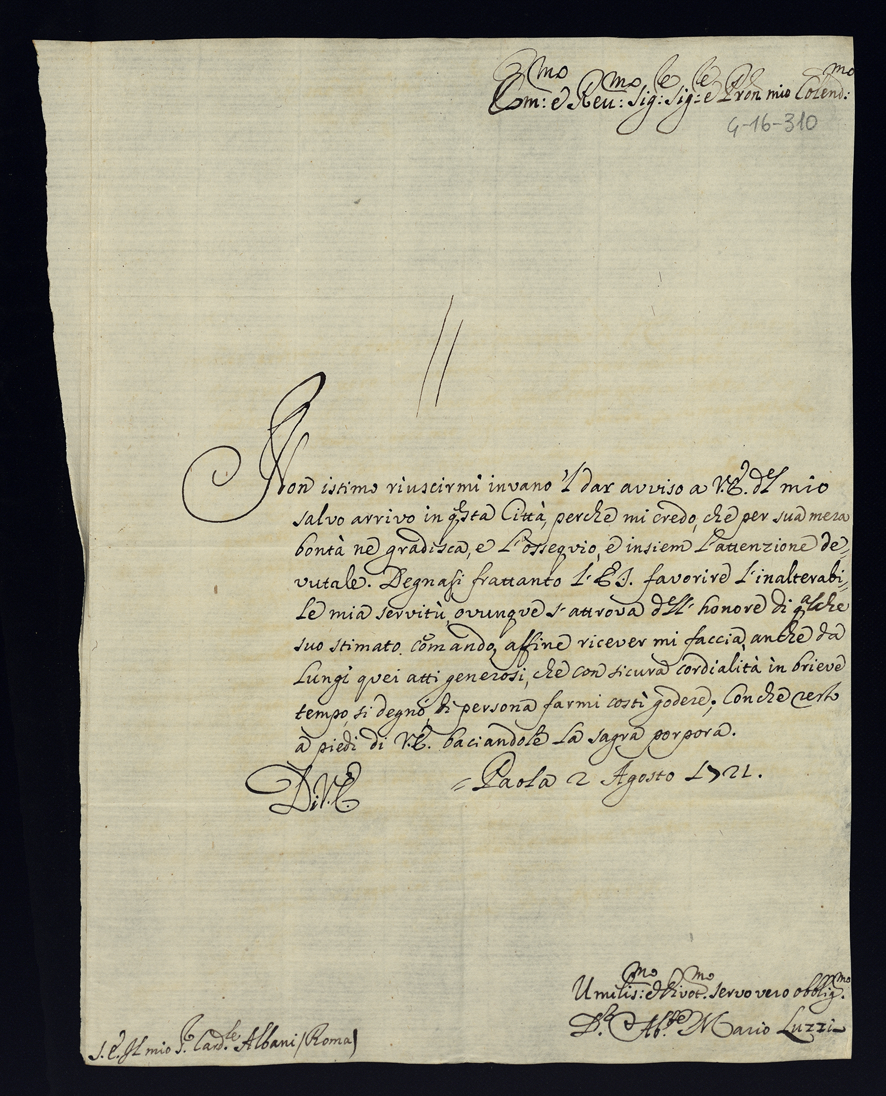 Em:mo e Reu:mo Sig:re Sig:re e Pron mio Colend:mo
4-16-310
Non istimo riuscirmi invano 'l dar avviso a V.E. del mio
salvo arrivo in qsta Città, perche mi credo, che per sua mera
bontà ne gradisca, e l'ossequio, e insiem l'attenzione de-
vutale. Degnasi frattanto l'E.S. favorire l'inalterabi-
le mia servitù, ovunque s'attrova dell'honore di qalche
suo stimato comando, affine ricever mi faccia, anche da
lungi quei atti generosi, che con sicura cordialità in brieve
tempo, si degnò, di persona farmi costì godere; Conche resto
a piedi di V.E. baciandole la sagra porpora.
Di V.E.
Paola 2 Agosto 1721.
Umilis:mo e Divot:mo servo vero obblig:mo
D.r Ab.te Mario Luzzi
S.E. Il mio S.r Card.le Albani (Roma)